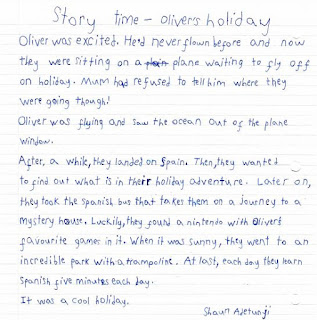 Story time - Oliver's holiday
Oliver was excited. He'd never flown before and now
they were sitting on a plane waiting to fly off
on holiday. Mum had refused to tell him where they
were going though!
Oliver was flying and saw the ocean out of the plane
window.
After, a while, they landed on Spain. Then, they wanted
to find out what is in their holiday adventure. Later on,
they took the spanish bus that takes them on a journey to a
mystery house. Luckily, they found a nintendo with Oliver's
favourite games in it. When it was sunny, they went to an
incredible park with a trampoline. At last, each day they learn
Spanish five minutes each day.
It was a cool holiday.
Shaun Adetunji